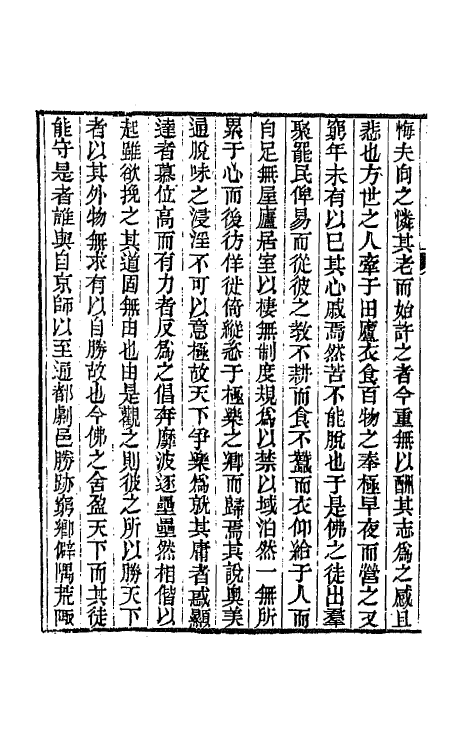 悔夫向之憐其老而始許之者今重無以酬其志為之感且
悲也方世之人牽于田廬衣食百物之奉極早夜而營之又
窮年未有以已其心戚焉然苦不能脫也于是佛之徒出羣
聚罷民俾易而從彼之教不耕而食不蠶而衣仰給于人而
自足無屋廬居室以棲無制度規為以禁以域泊然一無所
累于心而後彷徉徙倚縱恣于極樂之鄉而歸焉其說奧美
通脫味之浸淫不可以意極故天下爭樂為就其庸者惑顯
達者慕位高而有力者反為之倡奔靡波逐壘壘然相偕以
起雖欲挽之其道固無由也由是觀之則彼之所以勝天下
者以其外物無求有以自勝故也今佛之舍盈天下而其徒
能守是者誰與自京師以至通都劇邑勝跡窮鄉僻隅荒陬